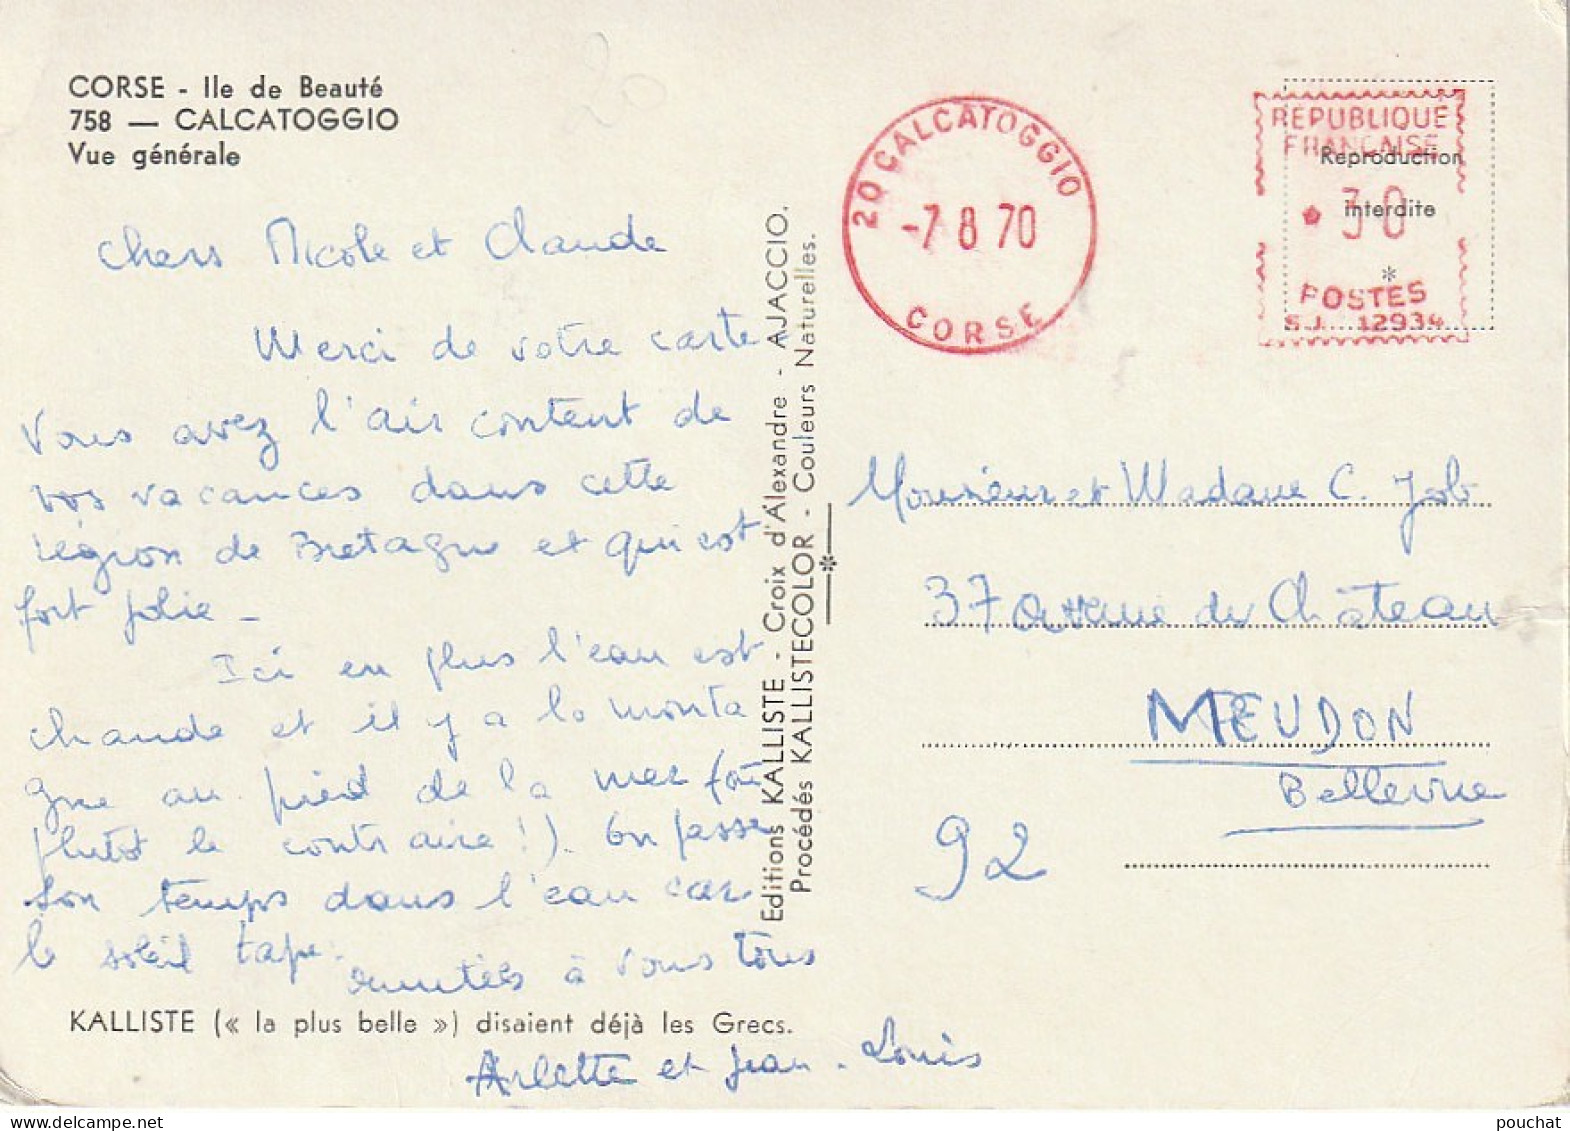 CORSE - Ile de Beauté
758 — CALCATOGGIO
Vue générale
20
Chers Nicole et Claude
Merci de votre carte -
Vous avez l'air content de
vos vacances dans cette
région de Bretagne et qui est
fort jolie -
Ici en plus l'eau est
chaude et il y a la monta
gne au pied de la mer (ou
plutôt le contraire !). On passe
son temps dans l'eau car
le soleil tape.
amitiés à vous tous
KALLISTE (« la plus belle ») disaient déjà les Grecs.
Arlette et Jean-Louis
Editions KALLISTE - Croix d'Alexandre - AJACCIO.
Procédés KALLISTECOLOR - Couleurs Naturelles.
20 CALCATOGGIO
-7 8 70
CORSE
REPUBLIQUE
FRANCAISE
Reproduction
30
interdite
*
POSTES
S.J. 12934
Monsieur et Madame C. Job
37 avenue du Château
MEUDON
Bellevue
92
pouchat